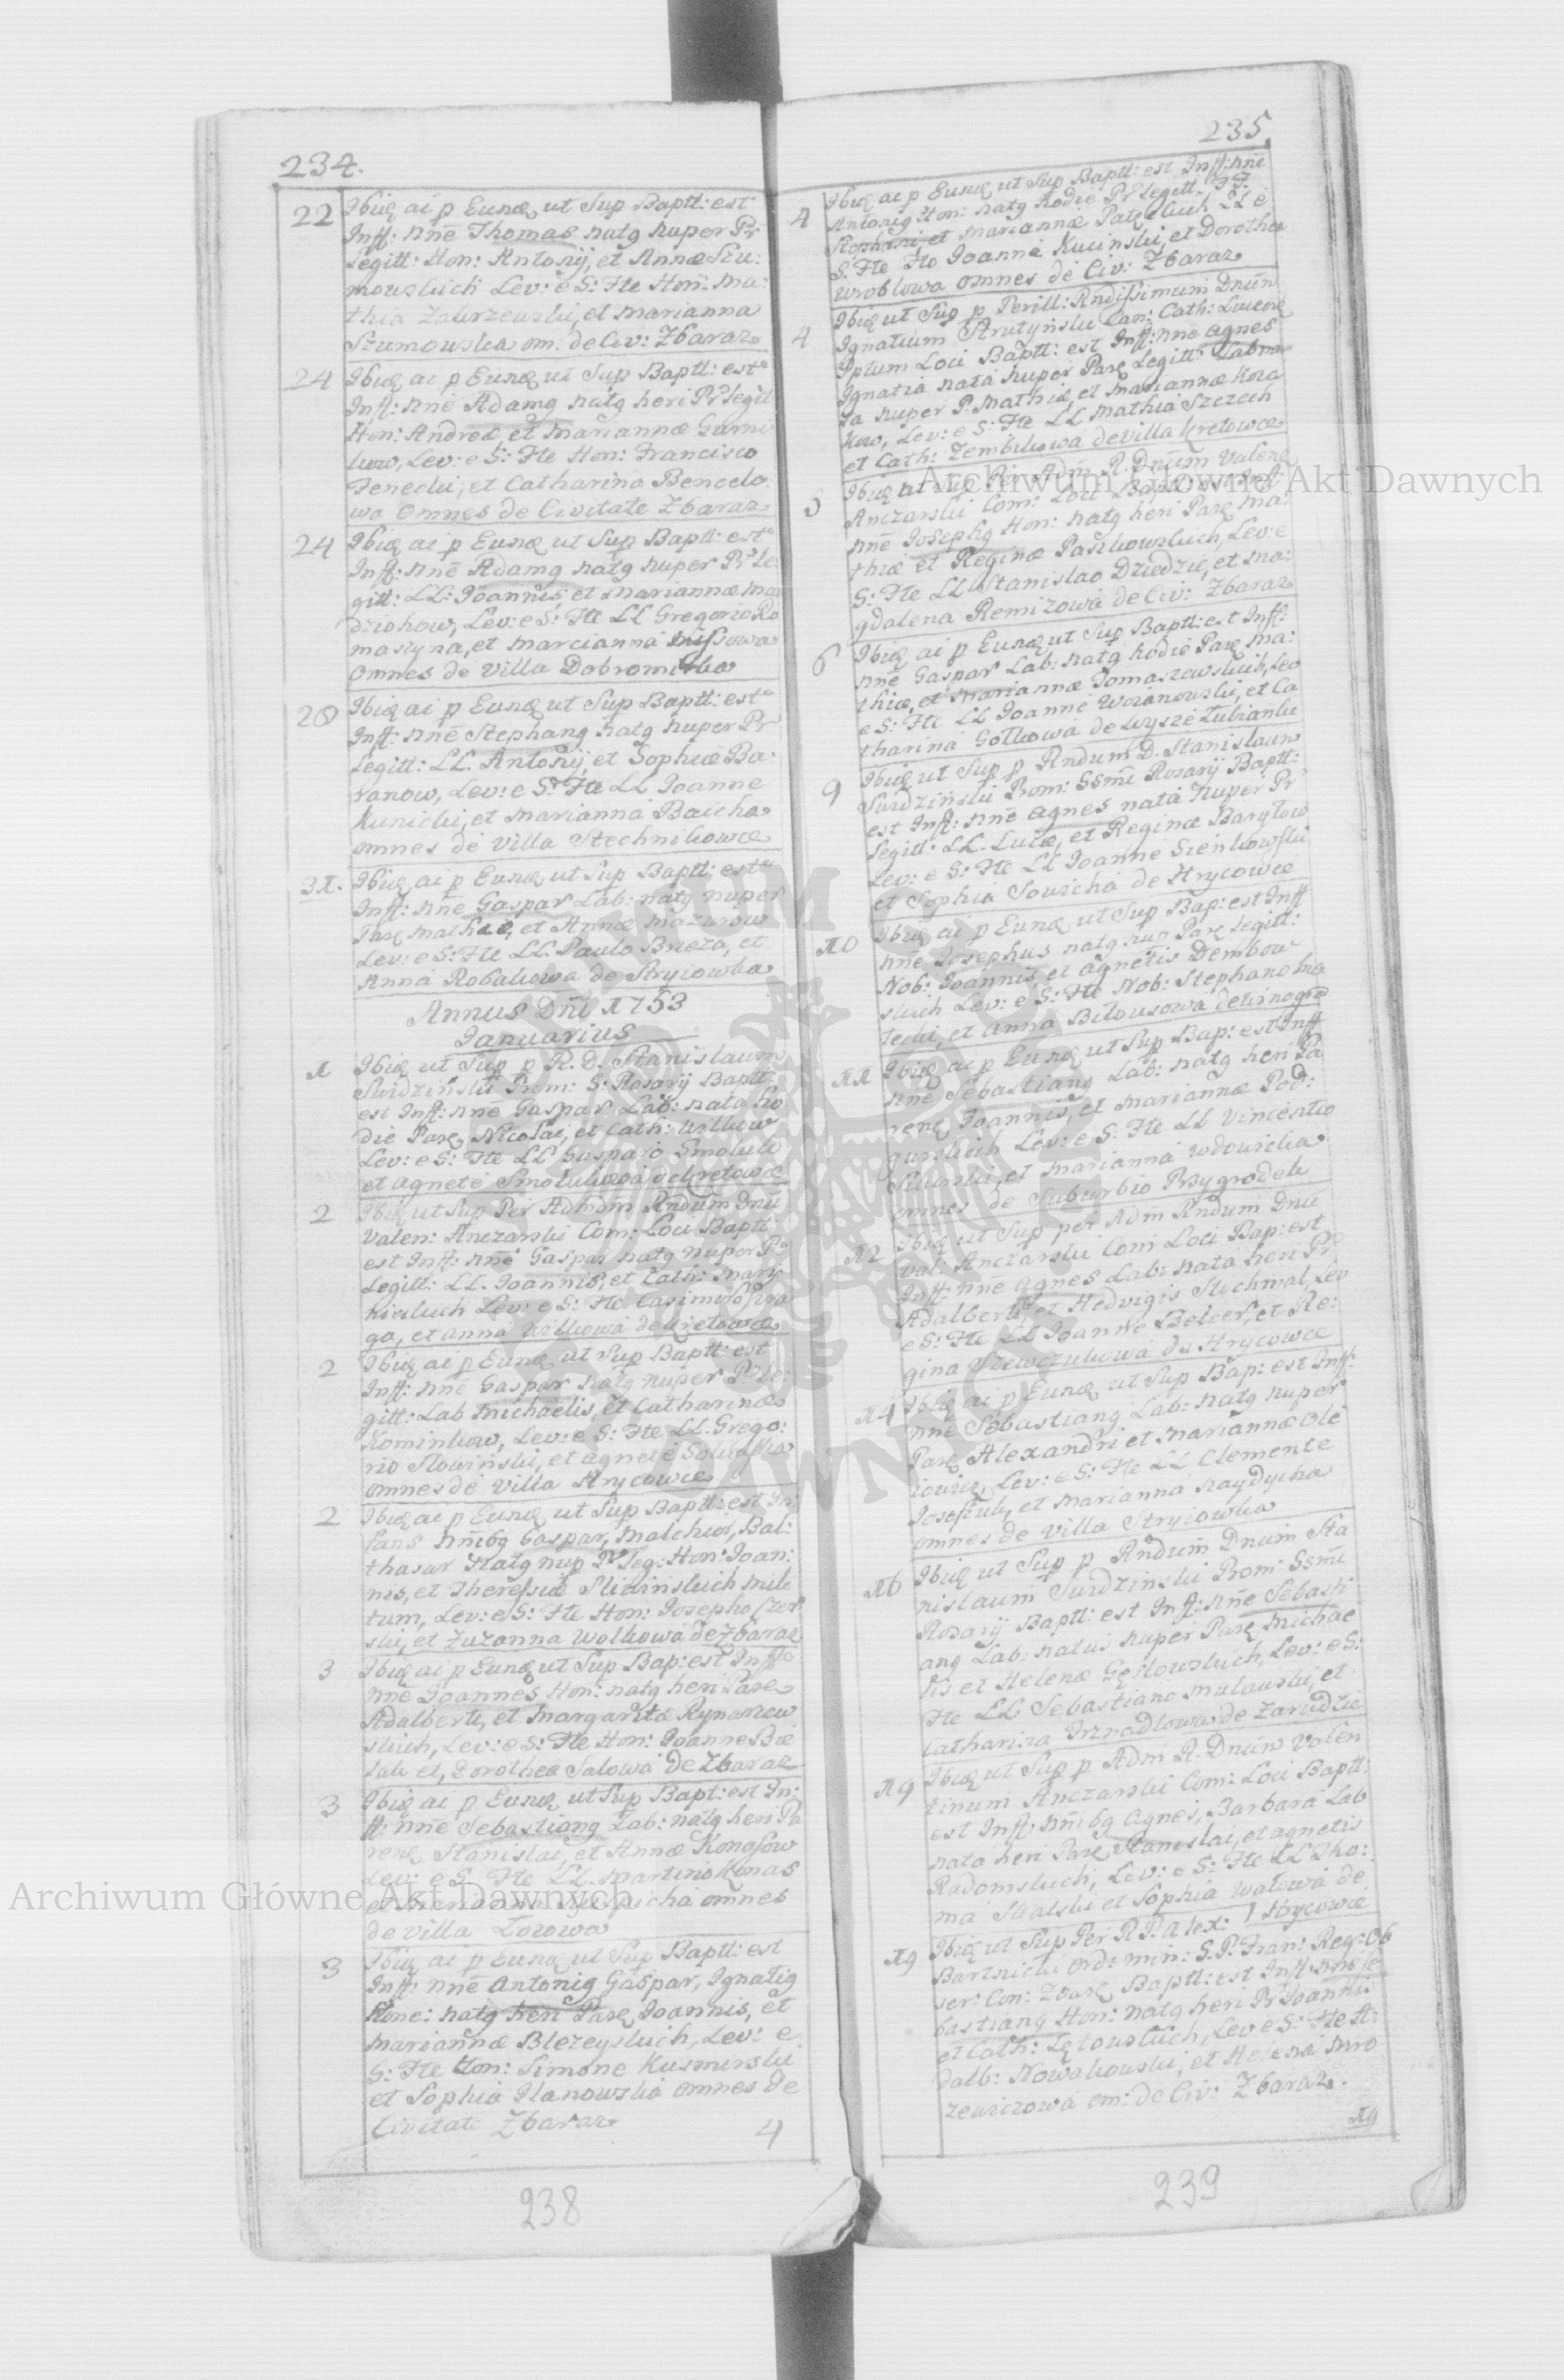 234.
22 Ibiq ai p Eunq ut Sup Baptt: est
Inff: nnē Thomas natq nuper Pr
Legitt: Hon: Antonij, et Annæ Szu:
mowskich Lev: e S: Fte Hon: Ma:
thia Zakrzewski, et Marianna
Szumowska om: de Civ: Zbaraz
24 Ibiq ai p Eunq ut Sup Baptt: est
Inff: nnē Adamq natq heri Pr legit
Hon: Andreæ, et Mariannæ
Lev: e S: Fte Hon: Francisco
et Catharina
omnes de Civitate Zbaraz
24 Ibiq ai p Eunq ut Sup Baptt: est
Inff: nnē Adamq natq nuper Pr Le
gitt: LL: Joannis et Mariannæ
Lev: e S: Fte LL Gregorio Ro
maszyna, et Marcianna
omnes de Villa Dobromirka
28 Ibiq ai p Eunq ut Sup Baptt: est
Inff: nnē Stephanq natq nuper Pr
Legitt: LL. Antonij, et Sophiæ Ba:
ranow, Lev: e S: Fte LL Joanne
Kunicki, et Marianna Baicha
omnes de Villa Stechnikowce
31. Ibiq ai p Eunq ut Sup Baptt: est
Inff: nnē Gaspar Lab: natq nuper
Parē Mathiæ, et Annæ Mazurow
Lev: e S: Fte LL. Paulo Brieza, et
Anna Robakowa de Stryiowka
Annus Dni 1753
Januarius
1 Ibiq ut Sup p R. D. Stanislaum
Surdzinski Prom: S: Rosarij Baptt
est Inff: nnē Gaspar Lab: nata ho
die Parē Nicolai, et Cath: Wilkow
Lev: e S: Fte LL Gasparo Smoluk
et Agnete Smolukowa de Kretowce
2 Ibiq ut Sup Per Admdm Rndum Dnū
Valen: Anczarski Com: Loci Baptt
est Inff: nnē Gaspar natq nuper Pr
Legitt: LL. Joannis, et Cath:
Lev: e S: Fte Casimiro
et Anna Wilkowa de Kretowce
2 Ibiq ai p Eunq ut Sup Baptt: est
Inff: nnē Gaspar natq nuper Pr Le:
gitt: Lab Michaelis, et Catharinæ
Kominkow, Lev: e S: Fte LL. Grego:
rio Slowinski, et Agnete
omnes de Villa Hrycowce
2 Ibiq ai p Eunq ut Sup Baptt: est In:
fans nnibq Gaspar, Malchior, Bal:
thasar natq nup Pr Leg: Hon: Joan:
nis, et Theressiæ Slizinskich Mili
tum, Lev: e S: Fte Hon: Josepho
ski, et Zuzanna Wolkowa de Zbaraz
3 Ibiq ai p Eunq ut Sup Bap: est Inff
nnē Joannes Hon: natq heri Parē
Adalberti, et Margaritæ Rynarzew
skich, Lev: e S: Fte Hon: Joanne
et, Dorothea Salowa de Zbaraz
3 Ibiq ai p Eunq ut Sup Bapt: est In:
ff: nnē Sebastianq Lab: natq heri Pa
renē Stanislai, et Annæ Konasow
Lev: e S: Fte LL. Martino Konas
et Marianna omnes
de Villa
3 Ibiq ai p Eunq ut Sup Baptt: est
Inff: nnē Antoniq Gaspar, Ignatiq
Hone: natq heri Parē Joannis, et
Mariannæ Blezeyskich, Lev: e
S: Fte Hon: Simone Kusmirski
et Sophia Ilanowska omnes de
Civitate Zbaraz
4
238
235.
4 Ibiq ai p Eunq ut Sup Baptt: est Inff: nnē
Antoniq Hon: natq hodie Pr Legitt: FF.
Stephani et Mariannæ LL e
S: Fte Fto Joanne Kucinski, et Dorothea
Wroblowa omnes de Civ: Zbaraz
4 Ibiq ut Sup p Perill: Rndissimum Dnūm
Ignatium Strutynski Can: Cath: Luceorē
Pptum Loci Baptt: est Inff: nnē Agnes
Ignatia nata nuper Parē Legitt:
nuper P. Mathiæ, et Mariannæ Koza
kow, Lev: e S: Fte LL Mathia Szczech
et Cath: Zembikowa de Villa Kretowce
Ibiq ut Sup Per Adm R. Dnūm Valenē
Anczarski Com: Loci Baptt: est Inff:
nnē Josephq Hon: natq heri Parē Ma:
thiæ et Reginæ Paszkowskich, Lev: e
S: Fte LL Stanislao Dziedzic, et Ma:
gdalena Remizowa de Civ: Zbaraz
6 Ibiq ai p Eunq ut Sup Baptt: est Inff:
nnē Gaspar Lab: natq hodie Parē Ma:
thiæ, et Mariannæ Tomaszewskich, Lev
e S: Fte LL Joanne Woianowski, et Ca
tharina Golkowa de Wysze Lubianki
9 Ibiq ut Sup p Rndum D. Stanislaum
Surdzinski Prom: SSmi Rosarij Baptt:
est Inff: nnē Agnes nata nuper Pr
Legitt: LL. Lucæ, et Reginæ Barylow
Lev: e S: Fte LL Joanne Sienkowski
et Sophia Sowicha de Hrycowce
10 Ibiq ai p Eunq ut Sup Bap: est Inff
nnē Josephus natq nup Parē Legitt:
Nob: Joannis, et Agnetis Dembow
skich Lev: e S: Fte Nob: Stephano
et Anna Bilousowa de
11 Ibiq ai p Eunq ut Sup Bap: est Inff
nnē Sebastianq Lab: natq heri Pa
renē Joannis, et Mariannæ Pod:
gurskich Lev: e S: Fte LL Vincentio
et Marianna Wdowicha
omnes de Suburbio Przygrodek
12 Ibiq ut Sup per Adm Rndum Dnū
Val: Anczarski Com Loci Bap: est
Inff: nnē Agnes Lab: nata heri Pr
Adalberti et Hedvigis Stechmal, Lev
e S: Fte LL Joanne Belcer, et Re:
gina Szewczukowa de Hrycowce
14 Ibiq ai p Eunq ut Sup Bap: est Inff:
nnē Sebastianq Lab: natq nuper
Parē Alexandri et Mariannæ Ole
Lev: e S: Fte LL Clemente
et Marianna Haydycha
omnes de Villa Stryiowka
16 Ibiq ut Sup p Rndum Dnum Sta
nislaum Surdzinski Prom: SSmi
Rosarij Baptt: est Inff: nnē Sebasti
anq Lab: natus nuper Parē Michae
lis et Helenæ Gęslowskich, Lev: e S:
Fte LL Sebastiano Mulawski, et
Catharina de Zarudzie
19 Ibiq ut Sup p Adm R. Dnūm Valen
tinum Anczarski Com: Loci Baptt:
est Inff: nnibq Agnes, Barbara Lab
nata heri Parē Stanislai, et Agnetis
Radomskich, Lev: e S: Fte LL Tho:
ma Skalski et Sophia Walowa de
Hrycowce
19 Ibiq ut Sup Per R. P. Alex:
Bartnicki Ord: Min: S. P. Fran: Reg: Ob
ser: Con: Zbarē Baptt: est Inff: nnē Se
bastianq Hon: natq heri Pr Joannis
et Cath: Lętowskich, Lev e S: Fte A:
dalb: Nowakowski, et Helena Mro
zewiczowa om: de Civ: Zbaraz.
19
239
Archiwum Główne Akt Dawnych
Archiwum Główne Akt Dawnych